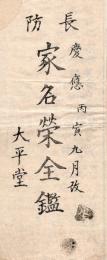 慶應丙寅九月改
長防
家名榮全鑑
大平堂